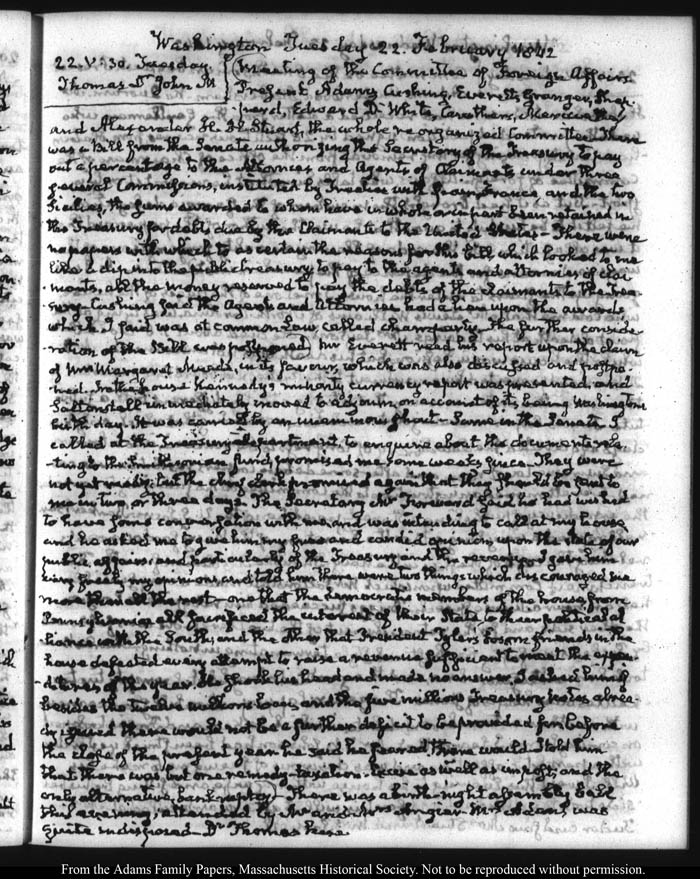 Washington Tuesday 22. February 1842
22. V:30. Tuesday
Thomas Dr John M
Meeting of the Committee of Foreign Affairs
Present Adams, Cushing, Everett, Granger, Shep-
perd, Edward D. White, Caruthers, Meriwether
and Alexander H. H. Stuart, the whole reorganized Committee. There
was a Bill from the Senate authorizing the Secretary of the Treasury to pay
out a percentage to the Attornies and Agents of Claimants under three
several Commissions, instituted by Treaties with Spain, France, and the two
Sicilies, the sums awarded to whom have in whole or in part been retained in
the Treasury for debts due by the Claimants to the United States — There were
no papers with which to ascertain the reasons for this bill which looked to me
like a dip into the public treasury to pay to the agents and attornies of clai-
mants, all the money reserved to pay the debts of the claimants to the Trea-
sury. Cushing said the Agents and Attornies had a lien upon the awards
which I said was at common Law, called champarty. The further conside-
ration of the Bill was postponed. Mr Everett read his report upon the claim
of Mrs Margaret Meade, in its favour, which was also discussed and postpo-
ned. In the house Kennedy's minority currency report was presented, and
Saltonstall immediately moved to adjourn on account of its being Washington's
birth day. It was carried by an unanimous shout — Same in the Senate. I
called at the Treasury department, to enquire about the documents rela-
ting to the Smithsonian fund, promised me some weeks since. They were
not yet ready; but the chief clerk promised again that they should be sent to
me in two, or three days. The Secretary Mr Forward said he had wished
to have some conversation with me, and was intending to call at my house
and he asked me to give him my free and candid opinion upon the state of our
public affairs, and particularly of the Treasury and the revenue. I gave him
very freely my opinions, and told him there were two things which discouraged me
more than all the rest — one that the democratic members of the house from
Pennsylvania all sacrificed the interest of their State to their political al-
liance with the South, and the other that President Tyler's bosom friends in the
house defeated every attempt to raise a revenue sufficient to meet the expen-
ditures of the year. He shook his head and made no answer. I asked him if
besides the twelve millions loan, and the five millions Treasury notes alrea-
dy issued there would not be a further deficit to be provided for before
the close of the present year. he said he feared there would. I told him
that there was but one remedy — taxation — excise as well as impost; and the
only alternative, bankruptcy — There was a birth-night assembly ball
this evening, attended by Mr and Mrs Angier — Mrs Adams was
quite indisposed — Dr Thomas here
From the Adams Family Papers, Massachusetts Historical Society. Not to be reproduced without permission.